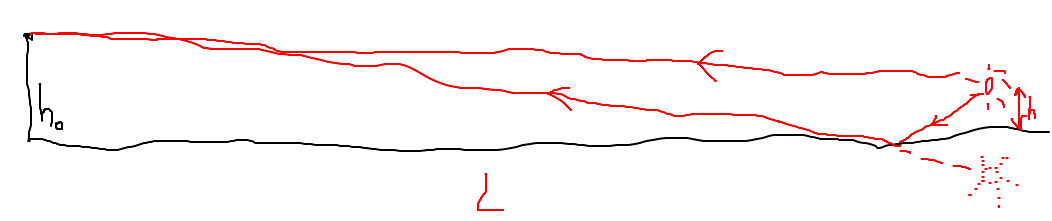 h₀
h
L